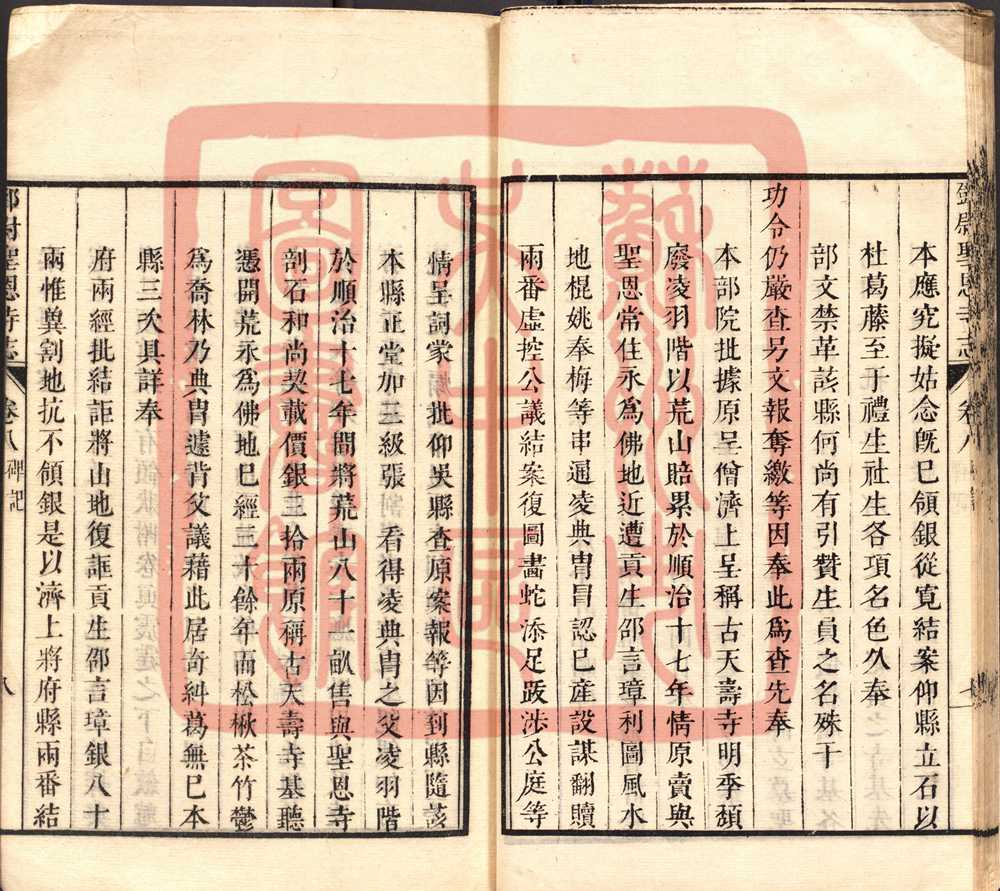 本應究擬姑念既已領銀從寛結案仰縣立石以
杜葛藤至于禮生社生各項名色久奉
部文禁革該縣何尚有引贊生員之名殊干
功令仍嚴查另文報奪繳等因奉此爲查先奉
本部院批據原呈僧濟上呈稱古天壽寺明季頹
廢凌羽階以荒山賠累於順治十七年情原賣與
聖恩常住永爲佛地近遭貢生邵言璋利圖風水
地棍姚奉梅等串通凌典冑冒認已産設謀翻贖
兩番虛控公議結案復圖畵蛇添足跋涉公庭等
情呈詞蒙 批仰吳縣查原案報等因到縣隨該
本縣正堂加三級張 看得凌典冑之父凌羽階
於順治十七年間將荒山八十一畝售與聖恩寺
剖石和尚契載價銀三拾兩原稱古天壽寺基聽
憑開荒永爲佛地已經三十餘年而松楸茶竹鬱
爲喬林乃典冑遽背父議藉此居奇糾葛無已本
縣三次具詳奉
府兩經批結詎將山地復誆貢生邵言璋銀八十
兩惟冀割地抗不領銀是以濟上將府縣兩番結
鄧尉聖恩寺志
卷八
碑記
八